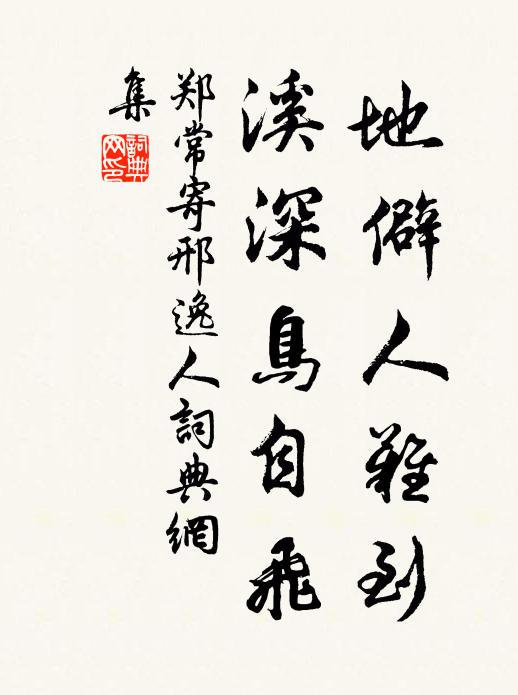 地僻人難到
溪深鳥自飛
郑常寄邢逸人詞典網
集
詞典
网印